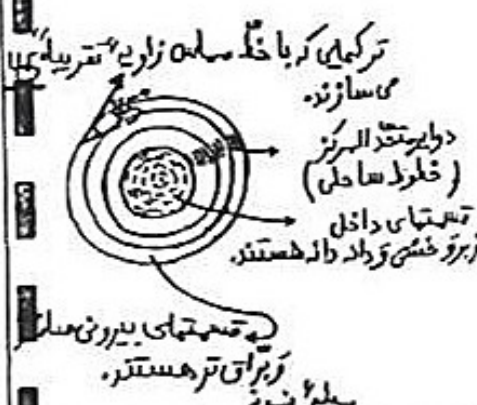 ترکهایی که با خط مماس زاویه "تقریباً"
می سازند.
دوایر متحدالمرکز
(خطوط ساحلی)
قسمتهای داخل
زبر و خشن و دانه دانه هستند.
قسمتهای بیرونی
و براق تر هستند.